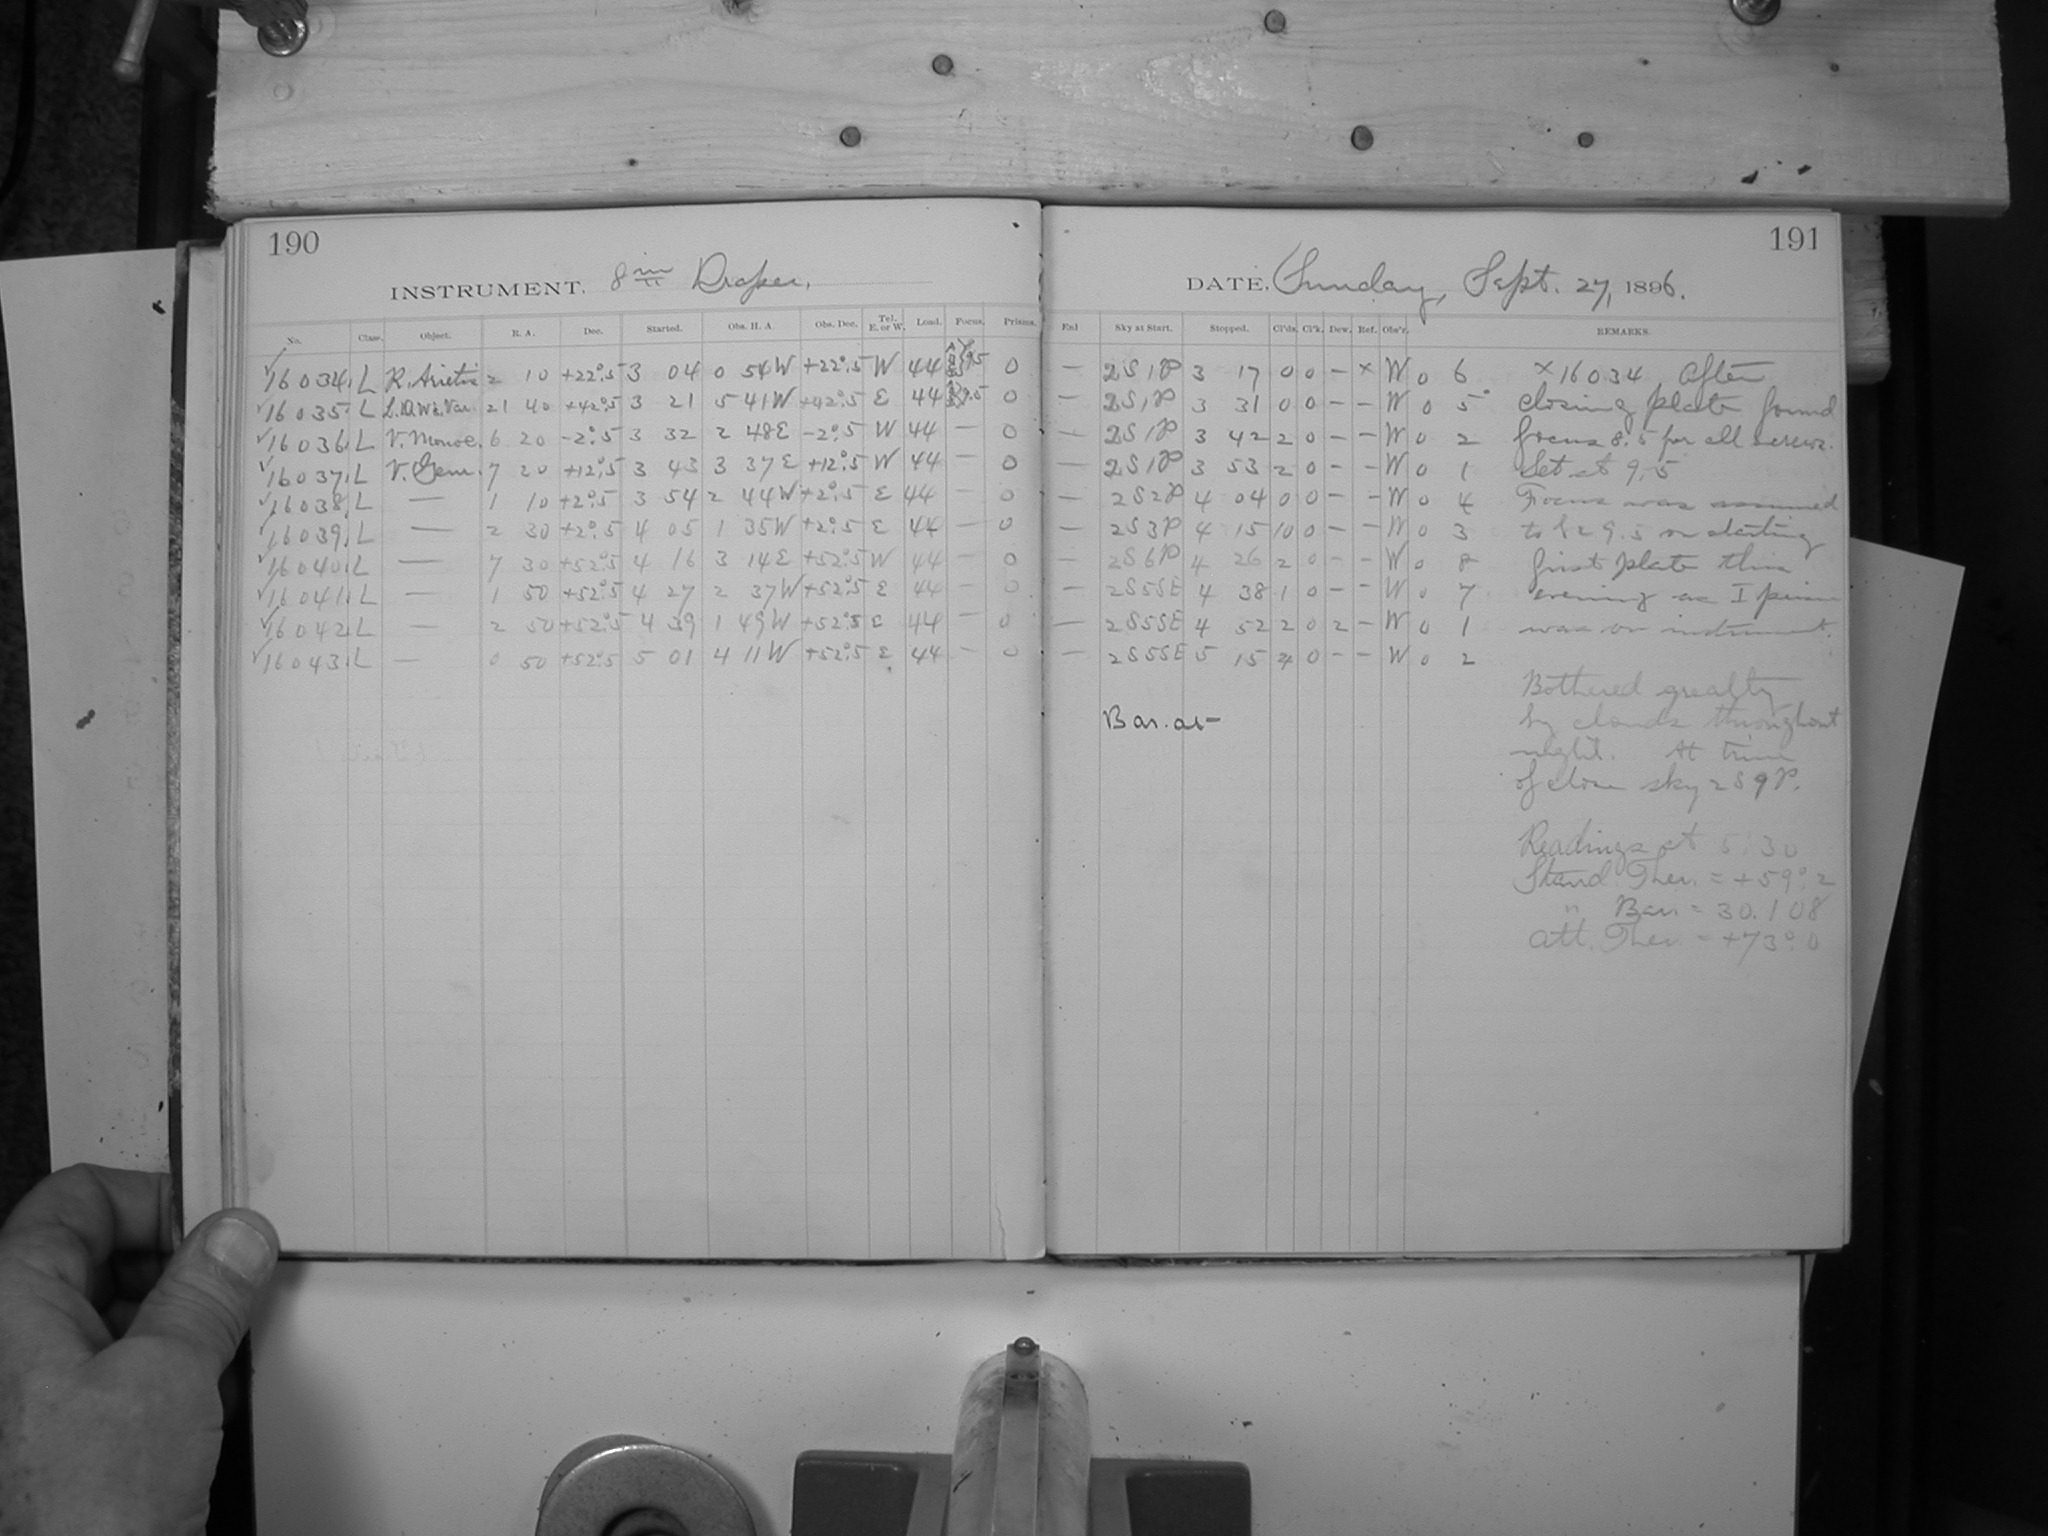 190
191
INSTRUMENT. 8 in Draper.
DATE. Sunday, Sept. 27, 1896.
No. Class. Object. R. A. Dec. Started. Obs. H. A. Obs. Dec. Tel. E. or W. Load. Focus. Prisms. Exl Sky at Start. Stopped. Cl'ds. Cl'k. Dew. Ref. Obs'r. REMARKS.
✓ 16034 L R. Arietis 2 10 +22°.5 3 04 0 54W +22°.5 W 44 9.5 0 — 2S1P 3 17 0 0 - × W 0 6 ×16034 After
✓ 16035 L 21 40 +42°.5 3 21 5 41W +42°.5 E 44 9.5 0 — 2S1P 3 31 0 0 - - W 0 5 closing plate found
✓ 16036 L V. Monoc. 6 20 -2°.5 3 32 2 48E -2°.5 W 44 — 0 — 2S1P 3 42 2 0 - - W 0 2 focus 8.5 for all screws.
✓ 16037 L V. Gem. 7 20 +12°.5 3 43 3 37E +12°.5 W 44 — 0 — 2S1P 3 53 2 0 - - W 0 1 Set at 9.5
✓ 16038 L — 1 10 +2°.5 3 54 2 44W +2°.5 E 44 — 0 — 2S2P 4 04 0 0 - - W 0 4 Focus was assumed
✓ 16039 L — 2 30 +2°.5 4 05 1 35W +2°.5 E 44 — 0 — 2S3P 4 15 10 0 - - W 0 3 to be 9.5 on starting
✓ 16040 L — 7 30 +52°.5 4 16 3 14E +52°.5 W 44 — 0 — 2S6P 4 26 2 0 - - W 0 8 first plate this
✓ 16041 L — 1 50 +52°.5 4 27 2 37W +52°.5 E 44 — 0 — 2S5SE 4 38 1 0 - - W 0 7 evening as I prism
✓ 16042 L — 2 50 +52°.5 4 39 1 49W +52°.5 E 44 — 0 — 2S5SE 4 52 2 0 2 - W 0 1 was on instrument.
✓ 16043 L — 0 50 +52°.5 5 01 4 11W +52°.5 E 44 — 0 — 2S5SE 5 15 4 0 - - W 0 2
Bothered greatly
Bar. at — by clouds throughout
night. At time
of close sky 2S9P.
Readings at 5:30
Stand. Ther. = +59°.2
" Bar. = 30.108
Att. Ther. = +73°.0